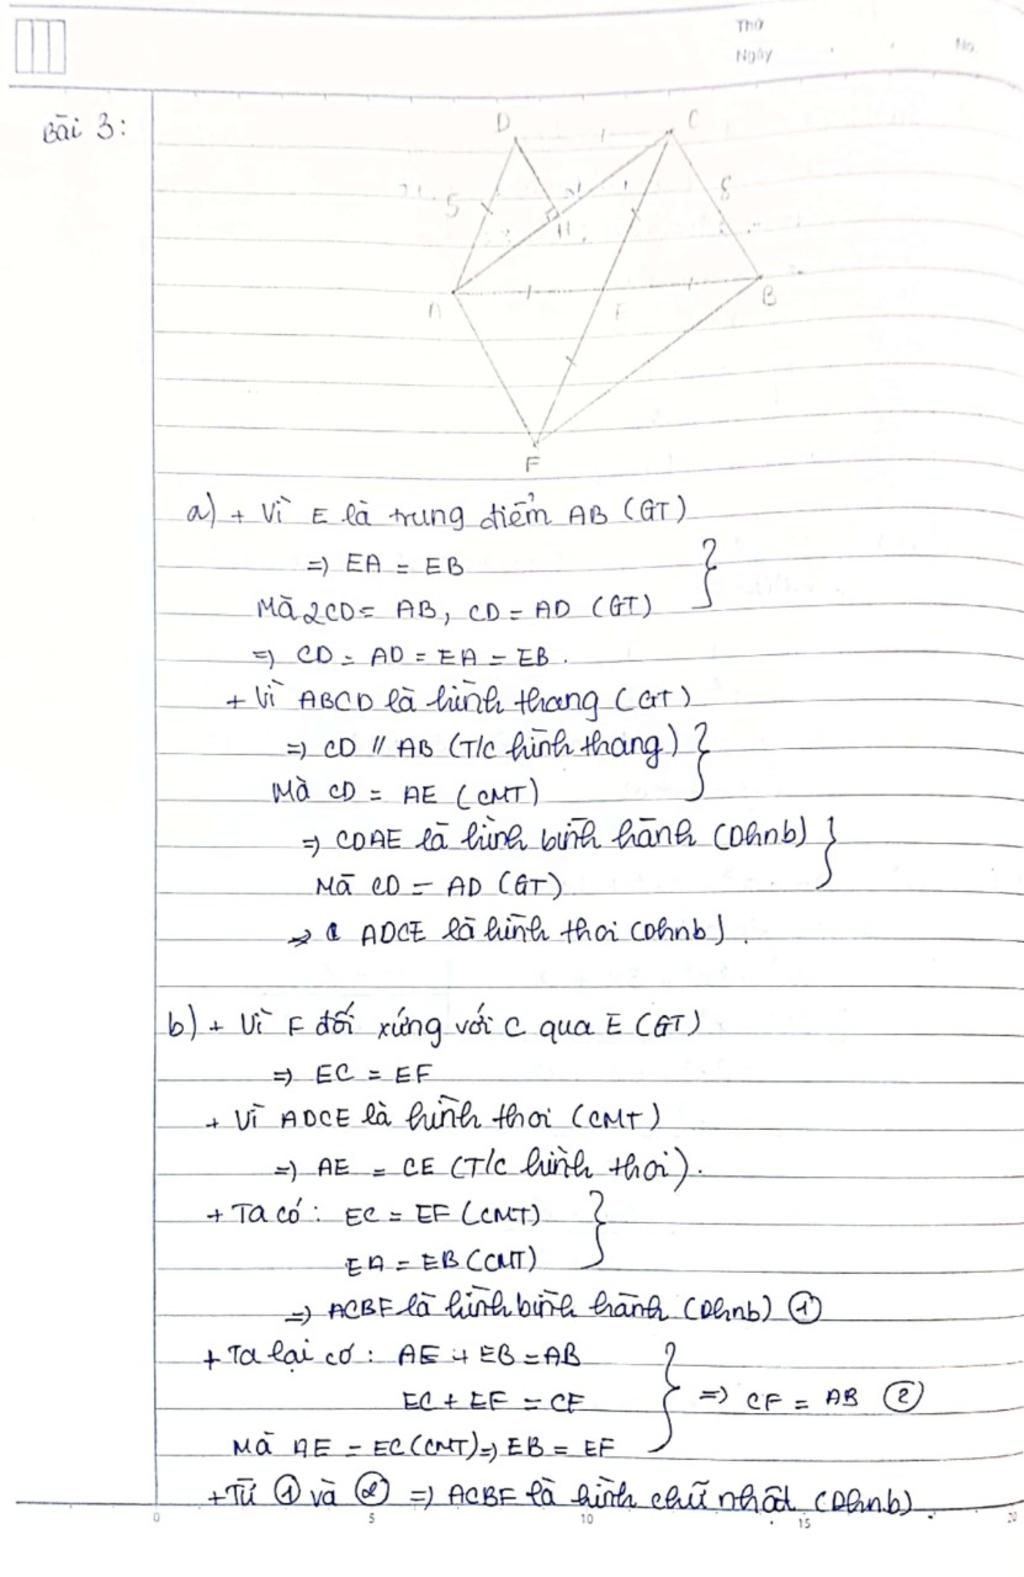 Thứ
Ngày
No.
Bài 3:
D
C
5
8
H
A
E
B
F
a) + Vì E là trung điểm AB (GT)
=> EA = EB
Mà 2CD = AB, CD = AD (GT)
=> CD = AD = EA = EB.
+ Vì ABCD là hình thang (GT)
=> CD // AB (T/c hình thang)
Mà CD = AE (CMT)
=> CDAE là hình bình hành (Dhnb)
Mà CD = AD (GT)
=> ADCE là hình thoi (Dhnb).
b) + Vì F đối xứng với C qua E (GT)
=> EC = EF
+ Vì ADCE là hình thoi (CMT)
=> AE = CE (T/c hình thoi).
+ Ta có: EC = EF (CMT)
EA = EB (CMT)
=> ACBF là hình bình hành (Dhnb) ①
+ Ta lại có: AE + EB = AB
EC + EF = CF => CF = AB ②
Mà AE = EC (CMT) => EB = EF
+ Từ ① và ② => ACBF là hình chữ nhật (Dhnb)
0 5 10 15 20